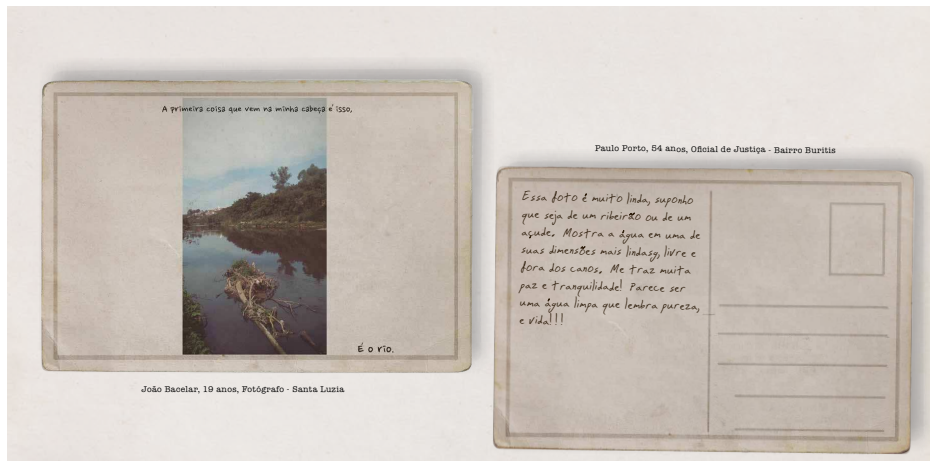 A primeira coisa que vem na minha cabeça é isso,
É o rio.
João Bacelar, 19 anos, Fotógrafo - Santa Luzia
Paulo Porto, 54 anos, Oficial de Justiça - Bairro Buritis
Essa foto é muito linda, suponho
que seja de um ribeirão ou de um
açude. Mostra a água em uma de
suas dimensões mais lindasg, livre e
fora dos canos. Me traz muita
paz e tranquilidade! Parece ser
uma água limpa que lembra pureza,
e vida!!!